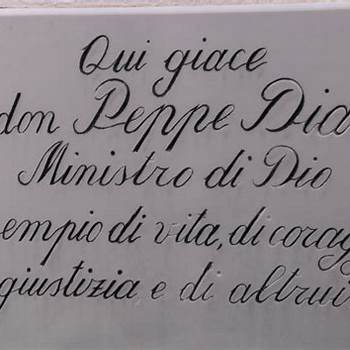 Qui giace
don Peppe Dia
Ministro di Dio
empio di vita, di corag
giustizia e di altrui